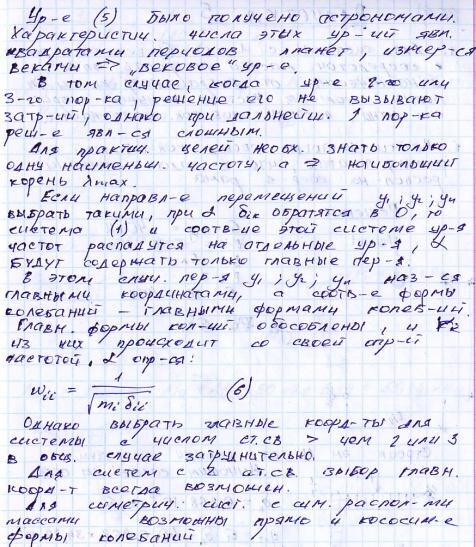 Ур-е (5) было получено астрономами.
Характеристич. числа этих ур-ий явл.
квадратами периодов планет, измер-ся
веками ⇒ „вековое" ур-е.
В том случае, когда ур-е 2-го или
3-го пор-ка, решение его не вызывают
затр-ий, однако при дальнейш. ↑ пор-ка
реш-е явл-ся сложным.
Для практич. целей необх. знать только
одну наименьш. частоту, а ⇒ наибольший
корень λmax.
Если направл-е перемещений y₁; y₂; yn
выбрать такими, при δik обратятся в 0, то
система (1) и соотв-ие этой системе ур-я
частот распадутся на отдельные ур-я,
будут содержать только главные пер-я.
В этом случ. пер-я y₁; y₂; yn наз-ся
главными координатами, а соотв-е формы
колебаний – главными формами колеб-ий.
Главн. формы кол-ий обособлены, и
из них происходит со своей опр-й
частотой, опр-ся:
ωii = 1/√(mi δii) (6)
Однако выбрать главные коорд-ты для
системы с числом ст.св > чем 2 или 3
в общ. случае затруднительно.
Для систем с 2 ст.св. выбор главн.
коорд-т всегда возможен.
Для симетрич. сист. с сим. распол-ми
массами возможны прямо и кососим-е
формы колебаний.